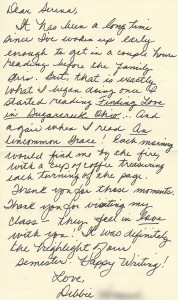 Dear Serena,
It has been a long time
since I've woken up early
enough to get in a couple hours
reading before the family
stirs. But, that is exactly
what I began doing once I
started reading Finding Love
in Sugarcreek Ohio... And
again when I read An
Uncommon Grace! Each morning
would find me by the fire
with a cup of coffee treasuring
each turning of the page.
Thank you for those moments.
Thank you for visiting my
class – they fell in love
with you! It was definitely
the highlight of our
semester. Happy Writing!
Love,
Debbie